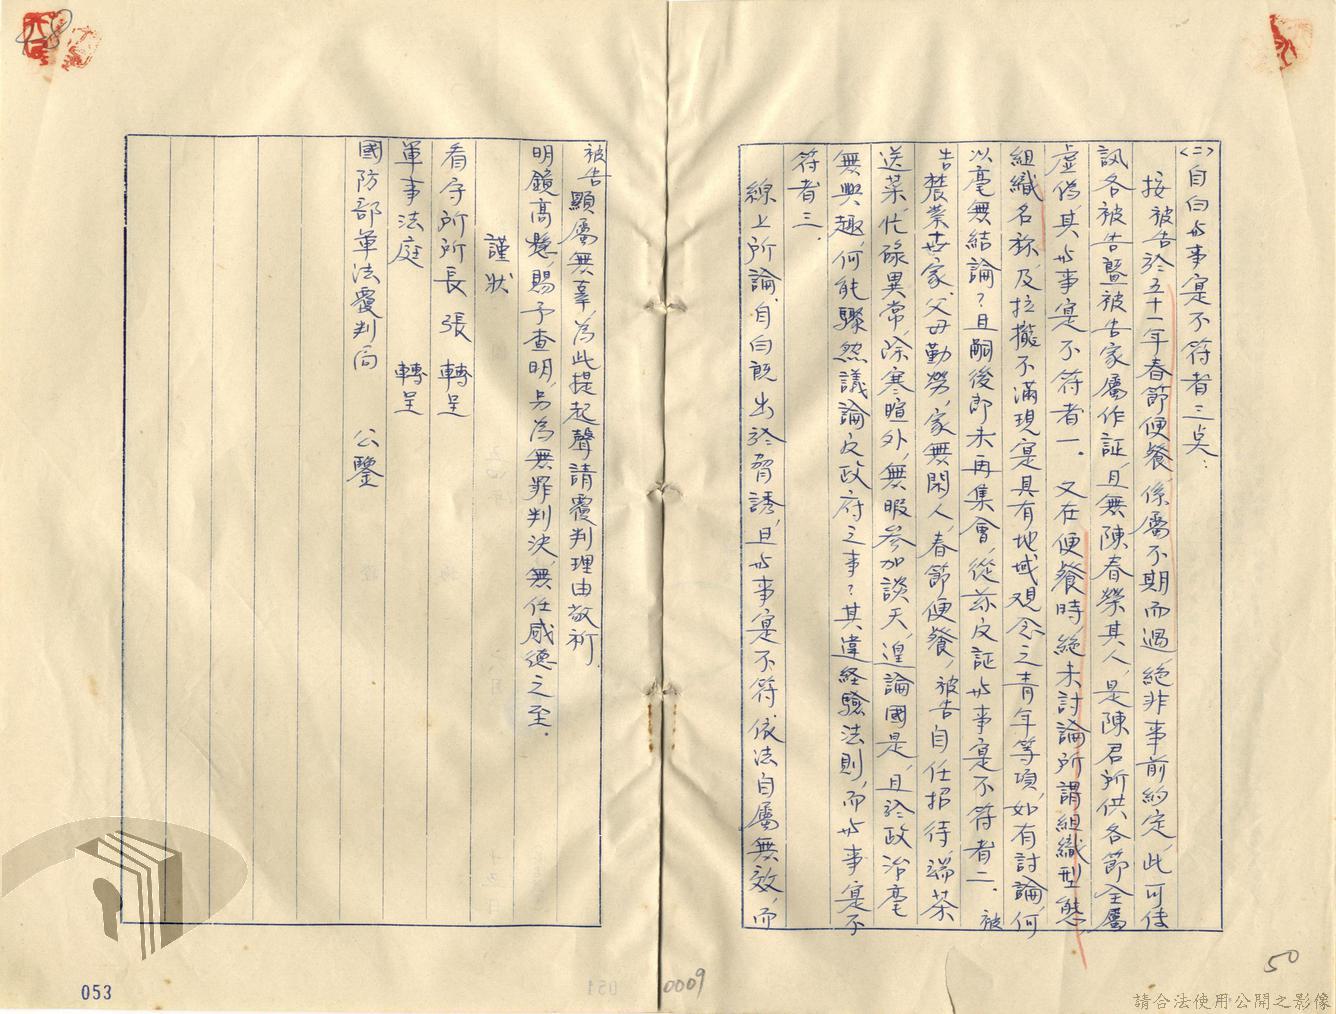 (二)自白与事寔不符者三点：
按被告於五十一年春節便餐,係屬不期而遇,絕非事前約定,此可傳
訊各被告暨被告家屬作証,且無陳春榮其人,是陳君所供各節全屬
虛偽,其与事寔不符者一.又在便餐時,絕未討論所謂組織型態,
組織名称,及拉攏不滿現寔具有地域观念之青年等項,如有討論,何
以毫無結論？且嗣後即未再集會,從茲反証与事寔不符者二.被
告農業世家,父母勤勞,家無閑人,春節便餐,被告自任招待,端茶
送菜,忙碌異常,除寒暄外,無暇參加談天,遑論國是,且於政治毫
無興趣,何能驟然議論反政府之事？其違経驗法則,而与事寔不
符者三.
綜上所論,自白既出於脅誘,且与事寔不符,依法自屬無效,而
被告顯屬無辜,為此提起聲請覆判理由,敬祈
明鏡高懸,賜予查明,另為無罪判決,無任感德之至.
謹狀
看守所所長張 轉呈
軍事法庭 轉呈
國防部軍法覆判局 公鑒
053
0009
50
請合法使用公開之影像